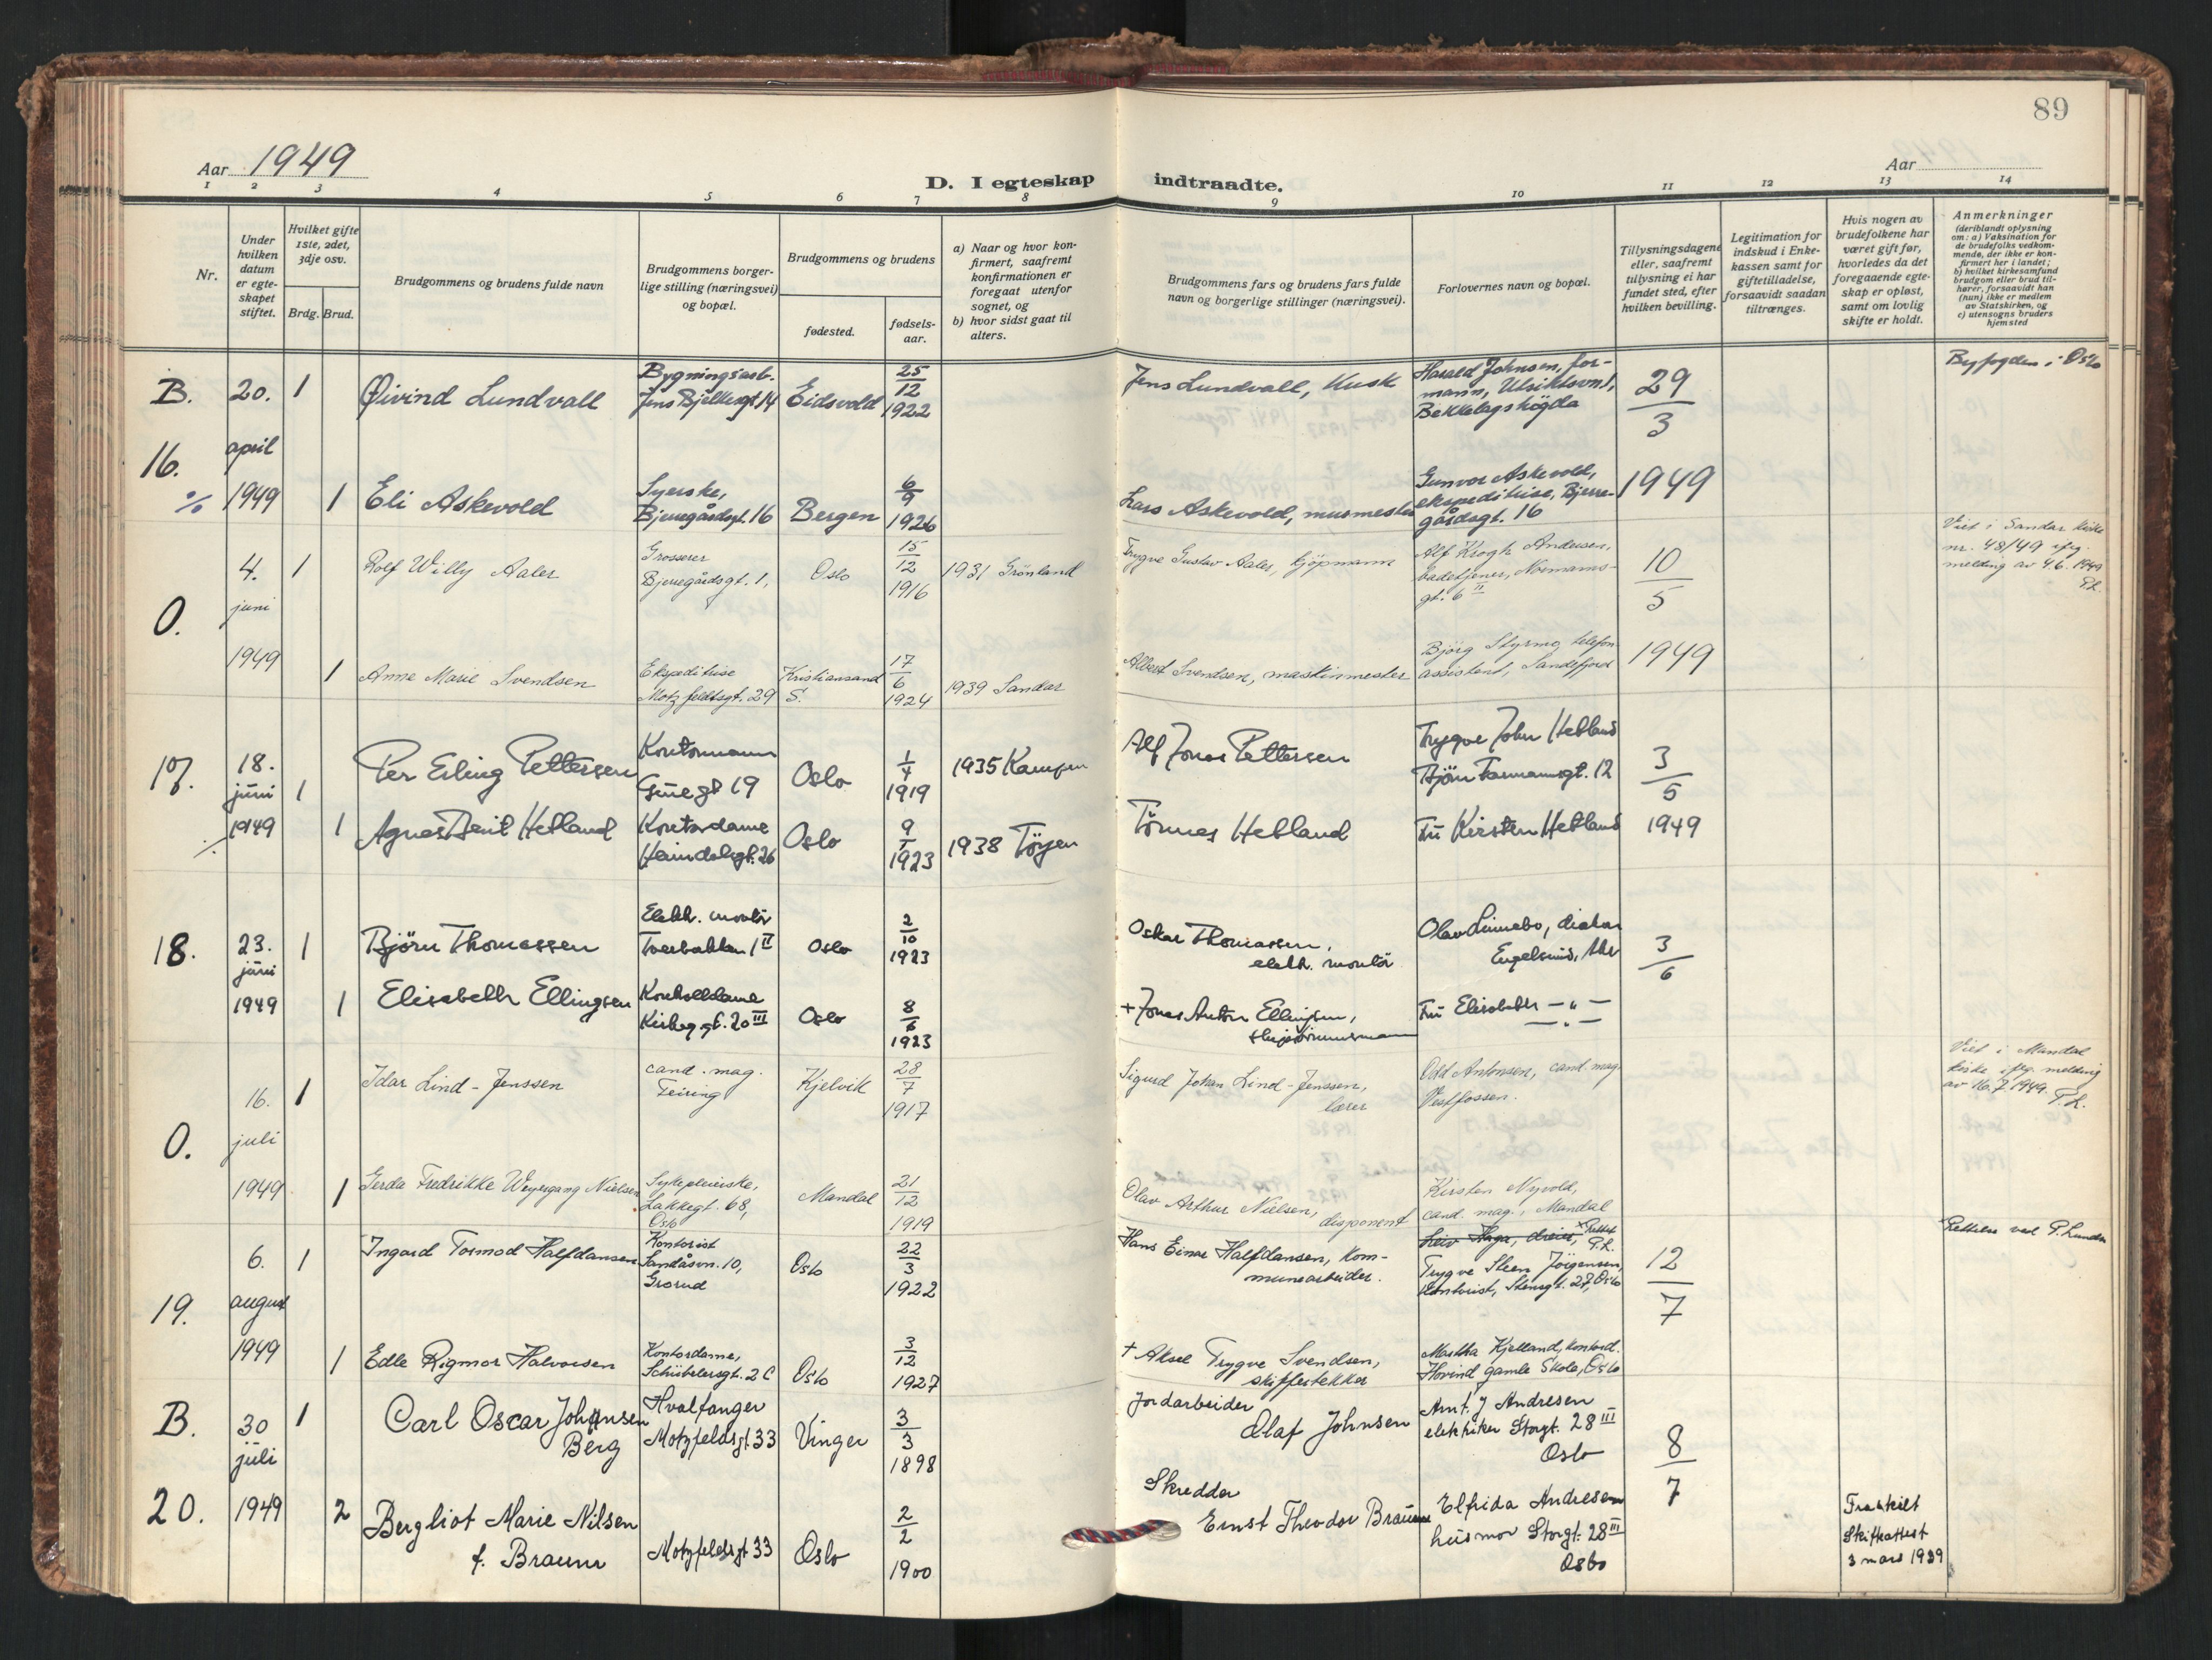 89
Aar 1949
Aar
D. I egteskap indtraadte.
1 2 3 4 5 6 7 8 9 10 11 12 13 14
Nr.
Under hvilken datum er egte-skapet stiftet.
Hvilket gifte 1ste, 2det, 3dje osv.
Brdg. Brud.
Brudgommens og brudens fulde navn
Brudgommens borger-lige stilling (næringsvei) og bopæl.
Brudgommens og brudens
fødested.
fødsels-aar.
a) Naar og hvor kon-firmert, saafremt konfirmationen er foregaat utenfor sognet, og
b) hvor sidst gaat til alters.
Brudgommens fars og brudens fars fulde navn og borgerlige stillinger (næringsvei).
Forlovernes navn og bopæl.
Tillysningsdagene eller, saafremt tillysning ei har fundet sted, efter hvilken bevilling.
Legitimation for indskud i Enke-kassen samt for giftetilladelse, forsaavidt saadan tiltrænges.
Hvis nogen av brudefolkene har været gift før, hvorledes da det foregaaende egte-skap er opløst, samt om lovlig skifte er holdt.
Anmerkninger
(deriblandt oplysning om: a) Vaksination for de brudefolks vedkom-mende, der ikke er kon-firmert her i landet; b) hvilket kirkesamfund brudgom eller brud til-hører, forsaavidt han (hun) ikke er medlem av Statskirken, og c) utensogns bruders hjemsted
B. 20. 1 Øivind Lundvall
Bygningsarb. Jens Bjelkesgt 14 Eidsvold 25/12 1922
Jens Lundvall, Kusk
Harald Johnsen, for-mann, Utsiktsvn 1, Bekkelagshögda
29/3
Byfogden i Oslo
16. april
% 1949 1 Eli Askevold
Syerske, Bjerregårdsgt. 16 Bergen 6/9 1926
Lars Askevold, murmester
Gunvor Askevold, ekspeditrise, Bjerre-gårdsgt. 16
1949
4. 1 Rolf Willy Aaler
Grosserer Bjerregårdsgt. 1, Oslo 15/12 1916 1931 Grönland
Trygve Gustav Aaler, kjöpmann
Alf Krogh Andersen, badetjener, Normanns-gt. 6 II
10/5
Viet i Sandar kirke nr. 48/49 ifg. melding av 4.6.1949 P.L.
O. juni
1949 1 Anne Marie Svendsen
Ekspeditrise Motzfeldtsgt. 29 Kristiansand S. 17/6 1924 1939 Sandar
Albert Svendsen, maskinmester
Björg Styrmo, telefon assistent, Sandefjord
1949
17. 18. juni 1 Per Erling Pettersen
Kontormann Grüegt 19 Oslo 1/4 1919 1935 Kampen
Alf Jonas Pettersen
Trygve John Hetland Björn Farmannsgt. 12
3/5
1949 1 Agnes Berit Hetland
Kontordame Heimdalsgt. 26 Oslo 9/1 1923 1938 Töyen
Tönnes Hetland
Fru Kirsten Hetland
1949
18. 23. juni 1 Björn Thomassen
Elektr. montör Tverbakken 1 II Oslo 2/10 1923
Oskar Thomassen, elektr. montör
Olav Linnebo,
3/6
1949 1 Elisabeth Ellingsen
Kontordame Kirkeggt. 20 III Oslo 8/6 1923
+ Jonas Anton Ellingsen,
Fru Elisabeth — " —
— " —
16. 1 Idar Lind-Jenssen
cand. mag. Feiring Kjelvik 28/7 1917
Sigurd Johan Lind-Jenssen, lærer
Odd Antonsen, cand. mag. Vestfossen.
Viet i Mandal kirke ifg. melding av 16.7.1949. P.L.
O. juli
1949 1 Gerda Fredrikke Weyergang Nielsen
Sykepleierske, Lakkegt. 68, Oslo Mandal 21/12 1919
Olav Arthur Nielsen, disponent
Kirsten Nyvold, cand. mag., Mandal
6. 1 Ingard Tormod Halfdansen
Kontorist Sandåsvn. 10, Grorud Oslo 22/3 1922
Hans Einar Halfdansen, kom-munearbeider.
Leiv Haga, dreier, × Rettet P.L.
Trygve Steen Jörgensen, kontorist, Stensgt. 27, Oslo
12/7
× Rettelse ved P. Lunde
19. august
1949 1 Edle Rigmor Halvorsen
Kontordame, Schübelersgt. 2 C Oslo 3/12 1927
+ Aksel Trygve Svendsen, skiffertekker
Martha Kjelland, kontord. Hovind gamle Skole, Oslo
B. 30 juli 1 Carl Oscar Johansen Berg
Hvalfanger Motzfeldsgt 33 Vinger 3/3 1898
Jordarbeider Olaf Johnsen
Arnt. J Andresen elektriker Storgt. 28 III Oslo
8/7
20. 1949 2 Bergliot Marie Nilsen f. Braunn
Motzfeldsgt 33 Oslo 2/2 1900
Skredder Ernst Theodor Braunn
Elfrida Andresen husmor Storgt. 28 III Oslo
Fraskilt Skifteattest 3 mars 1939